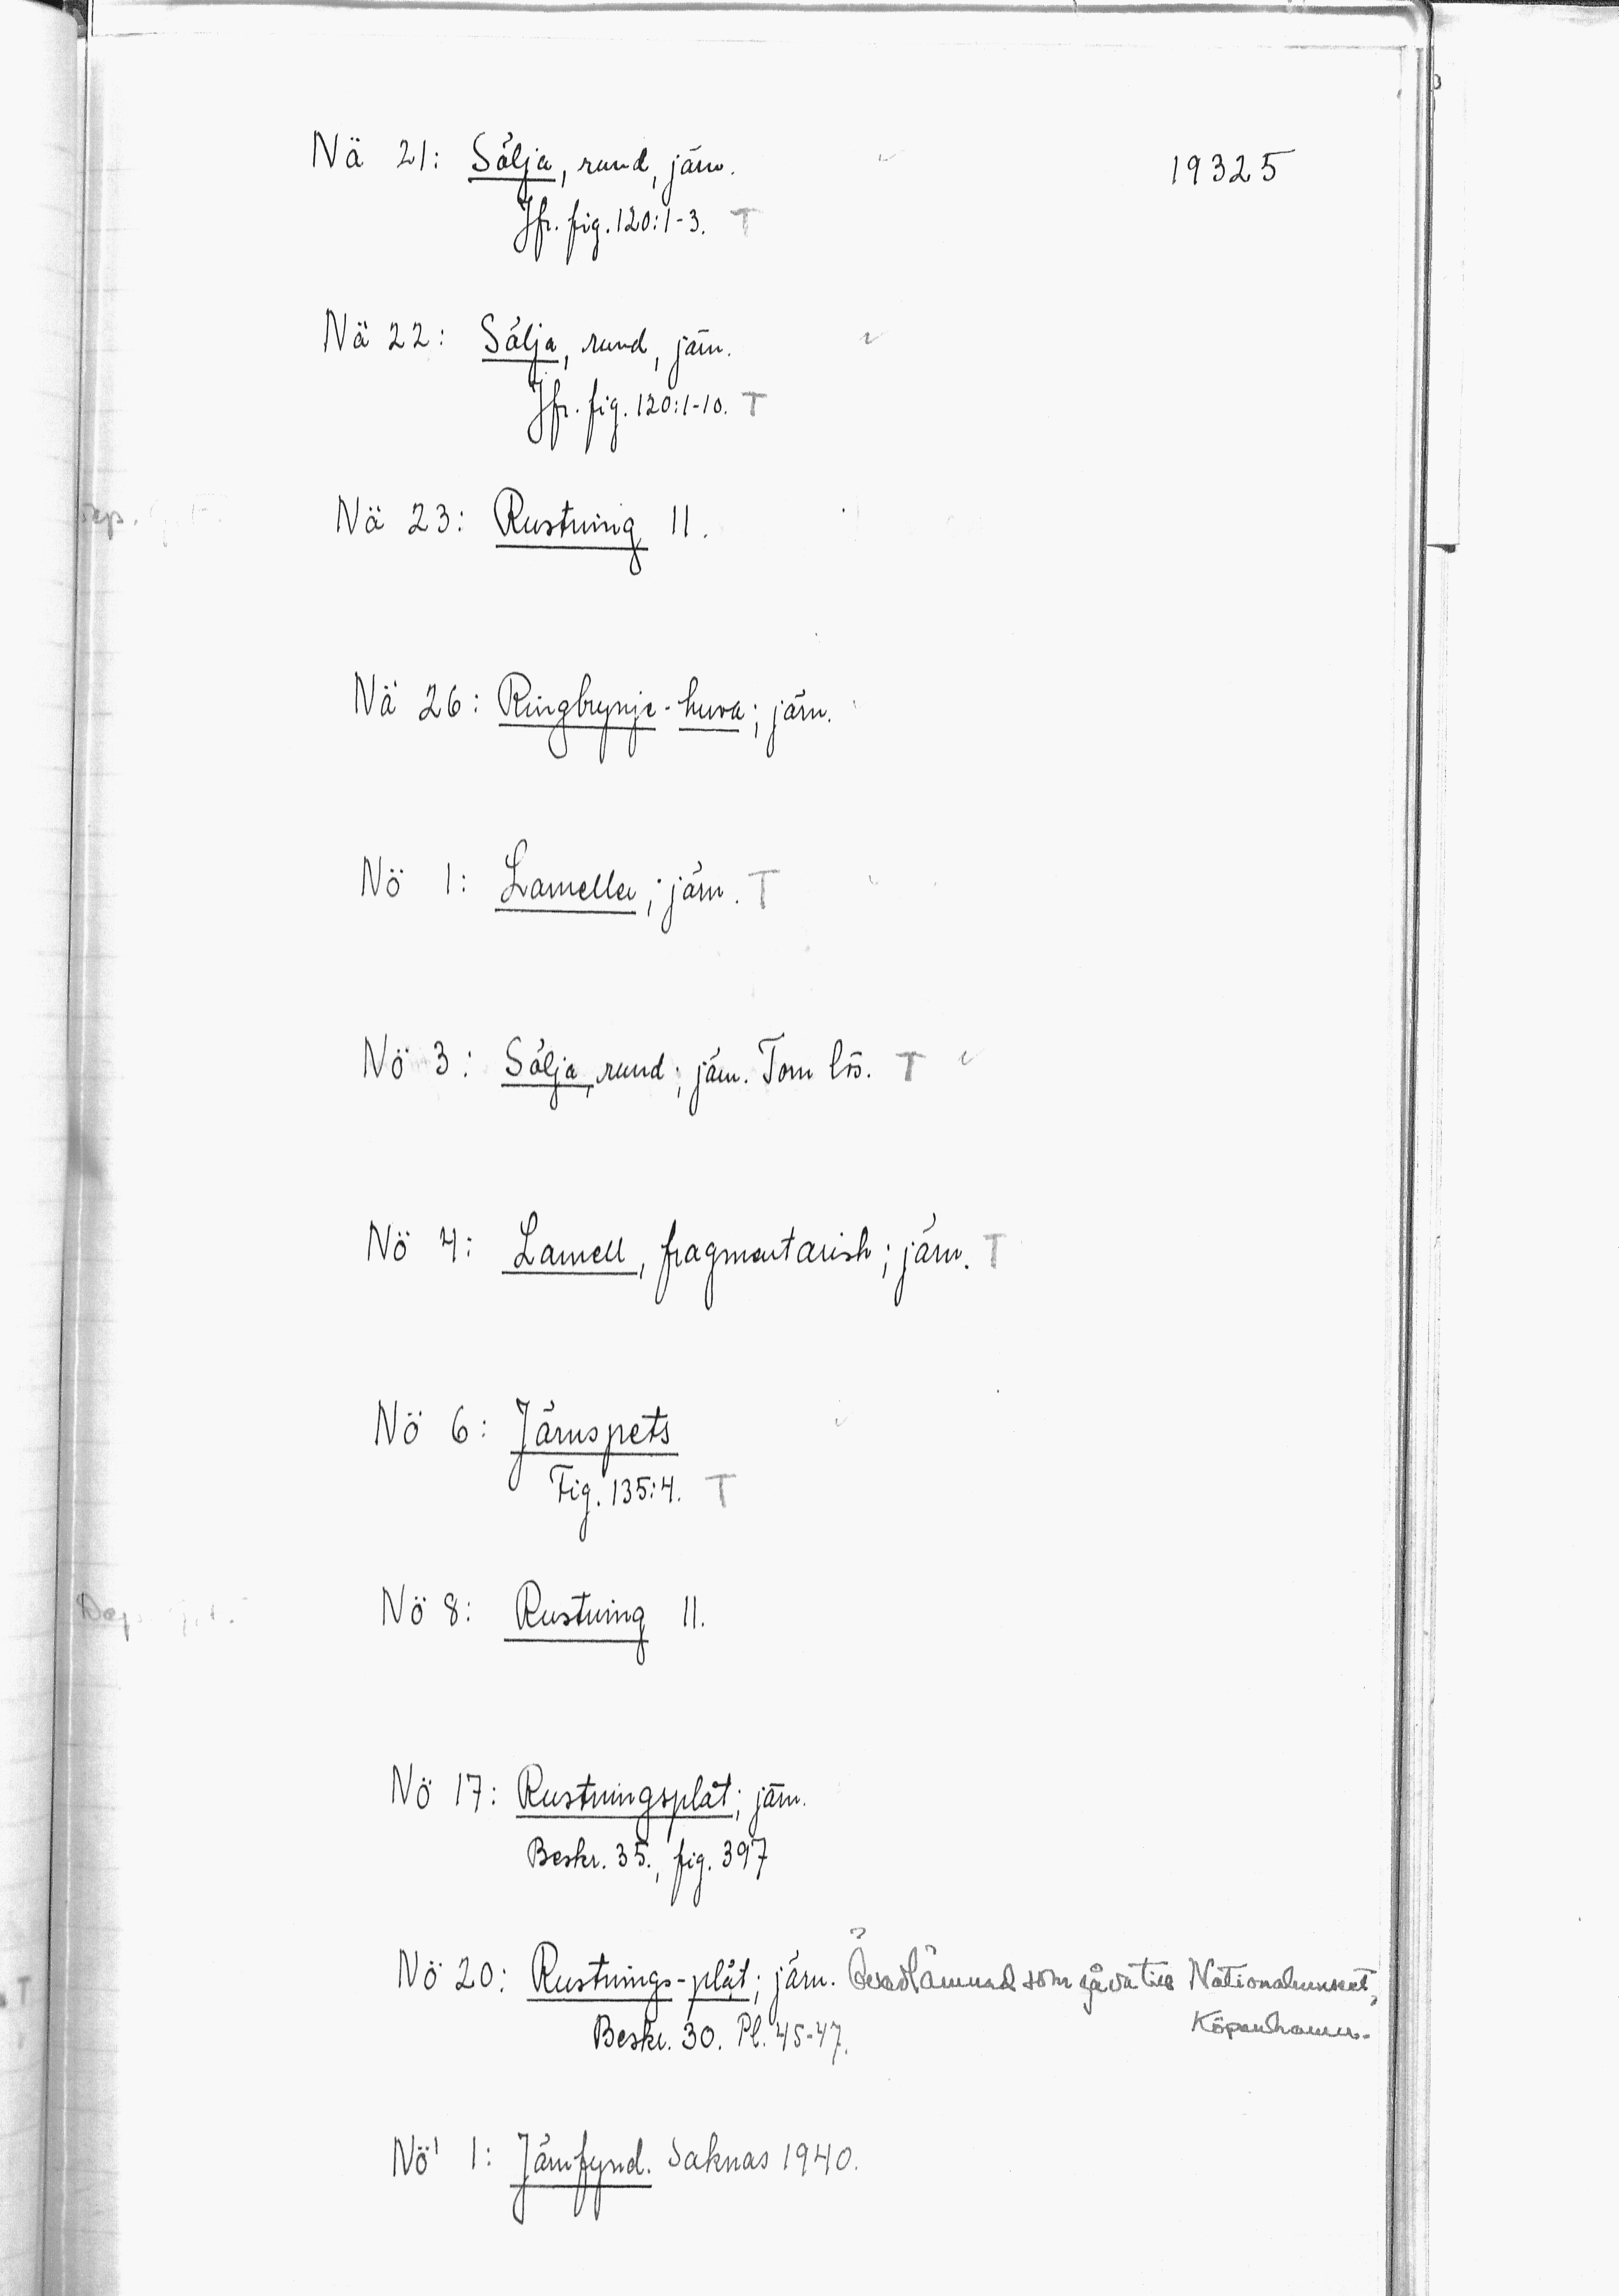 19325
Nä 21: Sölja, rund, järn.
Jfr. fig. 120:1-3. T
Nä 22: Sölja, rund, järn.
Jfr. fig. 120:1-10. T
Nä 23: Rustning II.
Nä 26: Ringbrynje-huva; järn.
Nö 1: Lameller; järn. T
Nö 3: Sölja, rund; järn. Torn lös. T
Nö 4: Lamell, fragmentarisk; järn. T
Nö 6: Järnspets
Fig. 135:4. T
Dep.
Nö 8: Rustning II.
Nö 17: Rustningsplåt; järn.
Beskr. 35., fig. 397
Nö 20: Rustnings-plåt; järn. Överlämnad som gåva till Nationalmuseet,
Köpenhamn.
Beskr. 30. Pl. 45-47.
T
Nö' 1: Järnfynd. Saknas 1940.